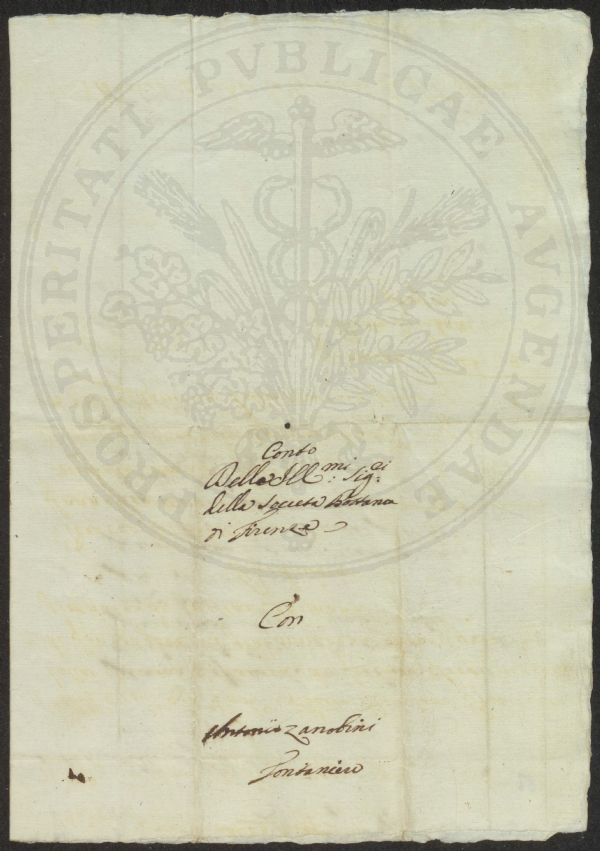 PROSPERITATI PVBLICAE AVGENDAE
Conto
Delle Ill.mi: Sig.ri:
della Società Bottanica
di Firenze
Con
Antonio Zanobini
Fontaniere